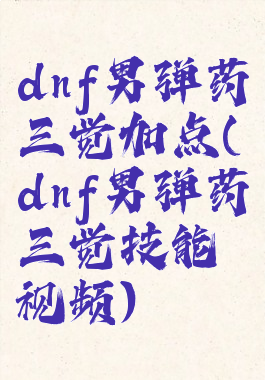 dnf男弹药
三觉加点(
dnf男弹药
三觉技能
视频)